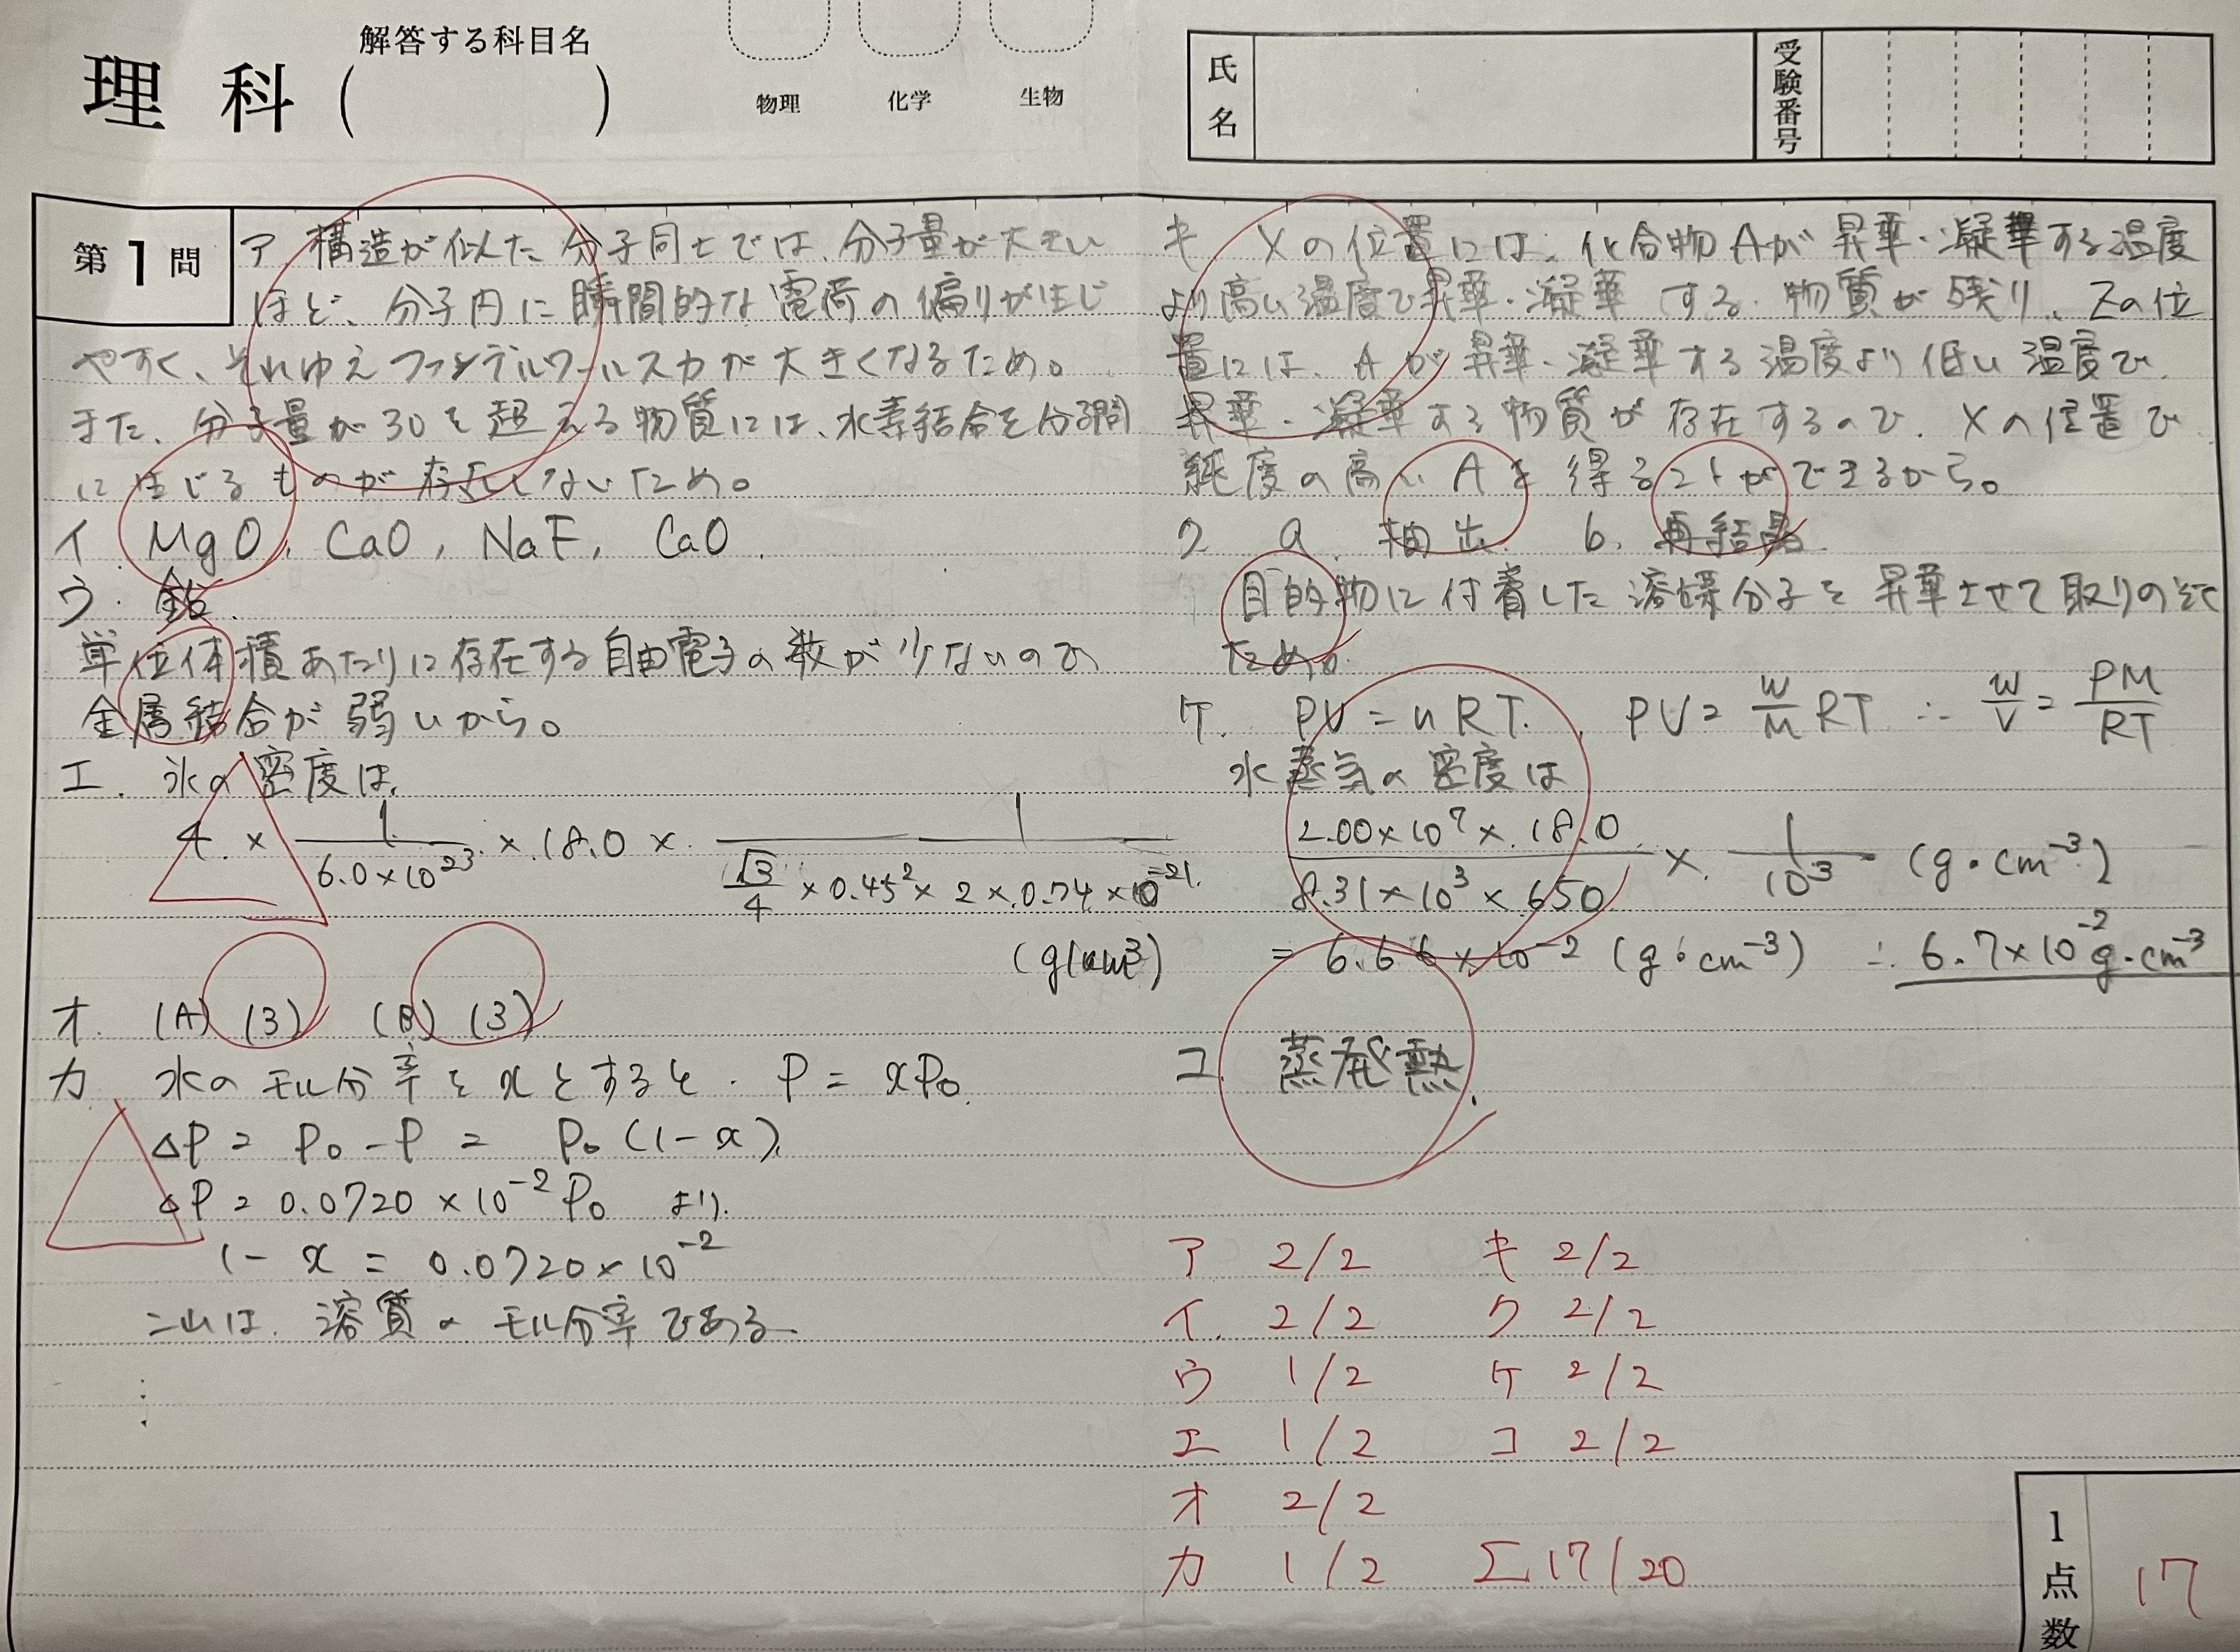 理科(解答する科目名)
物理 化学 生物
氏名
受験番号
第1問
ア 構造が似た分子同士では、分子量が大きい
ほど、分子内に瞬間的な電荷の偏りが生じ
やすく、それゆえファンデルワールス力が大きくなるため。
また、分子量が30を超える物質には、水素結合を分子間
に生じるものが存在しないため。
イ. MgO, CaO, NaF, CaO.
ウ.
単位体積あたりに存在する自由電子の数が少ないので
金属結合が弱いから。
エ. 氷の密度は、
4 × 1/(6.0×10²³) × 18.0 × 1/(√3/4 × 0.45² × 2 × 0.74 × 10⁻²¹)
(g/cm³)
オ. (A) (3) (B) (3)
カ 水のモル分率をxとすると. P = xP₀.
ΔP = P₀ - P = P₀(1-x).
ΔP = 0.0720×10⁻²P₀ より.
1-x = 0.0720×10⁻²
これは. 溶質のモル分率である.
キ Xの位置には、化合物Aが昇華・凝華する温度
より高い温度で昇華・凝華する物質が残り、Zの位
置には、Aが昇華・凝華する温度より低い温度で
昇華・凝華する物質が存在するので、Xの位置で
純度の高いAを得ることができるから。
ク a. 抽出. b. 再結晶.
目的物に付着した溶媒分子を昇華させて取りのぞく
ため。
ケ. PV=nRT., PV = w/M RT ∴ w/V = PM/RT
水蒸気の密度は
(2.00×10⁷×18.0)/(8.31×10³×650) × 1/10³ (g・cm⁻³)
= 6.66×10⁻² (g・cm⁻³) ∴ 6.7×10⁻² g・cm⁻³
コ. 蒸発熱.
ア 2/2 キ 2/2
イ. 2/2 ク 2/2
ウ 1/2 ケ 2/2
エ 1/2 コ 2/2
オ 2/2
カ 1/2 Σ17/20
1点数 17